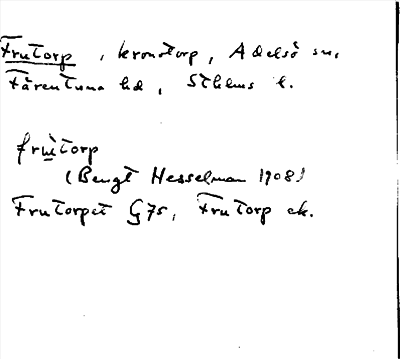 Frutorp, kronotorp, Adelsö sn,
Färentuna hd, Sthlms l.
frùtorp
(Bengt Hesselman 1908)
Frutorpet G 75, Frutorp ek.